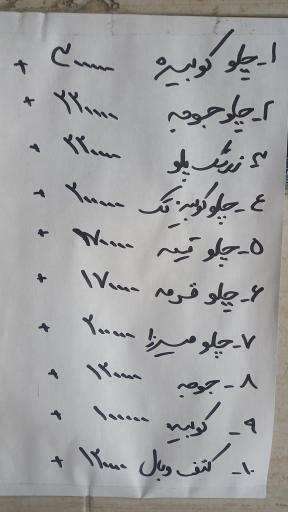 ۱- چلو کوبیده ۳۰۰۰۰۰ +
۲- چلو جوجه ۲۲۰۰۰۰ +
۳- زرشک پلو ۲۲۰۰۰۰ +
۴- چلو کوبیده تک ۲۰۰۰۰۰ +
۵- چلو قیمه ۱۷۰۰۰۰ +
۶- چلو قرمه ۱۷۰۰۰۰ +
۷- چلو میرزا ۲۰۰۰۰۰ +
۸- جوجه ۱۲۰۰۰۰ +
۹- کوبیده ۱۰۰۰۰۰ +
۱۰- کتف و بال ۱۲۰۰۰۰ +